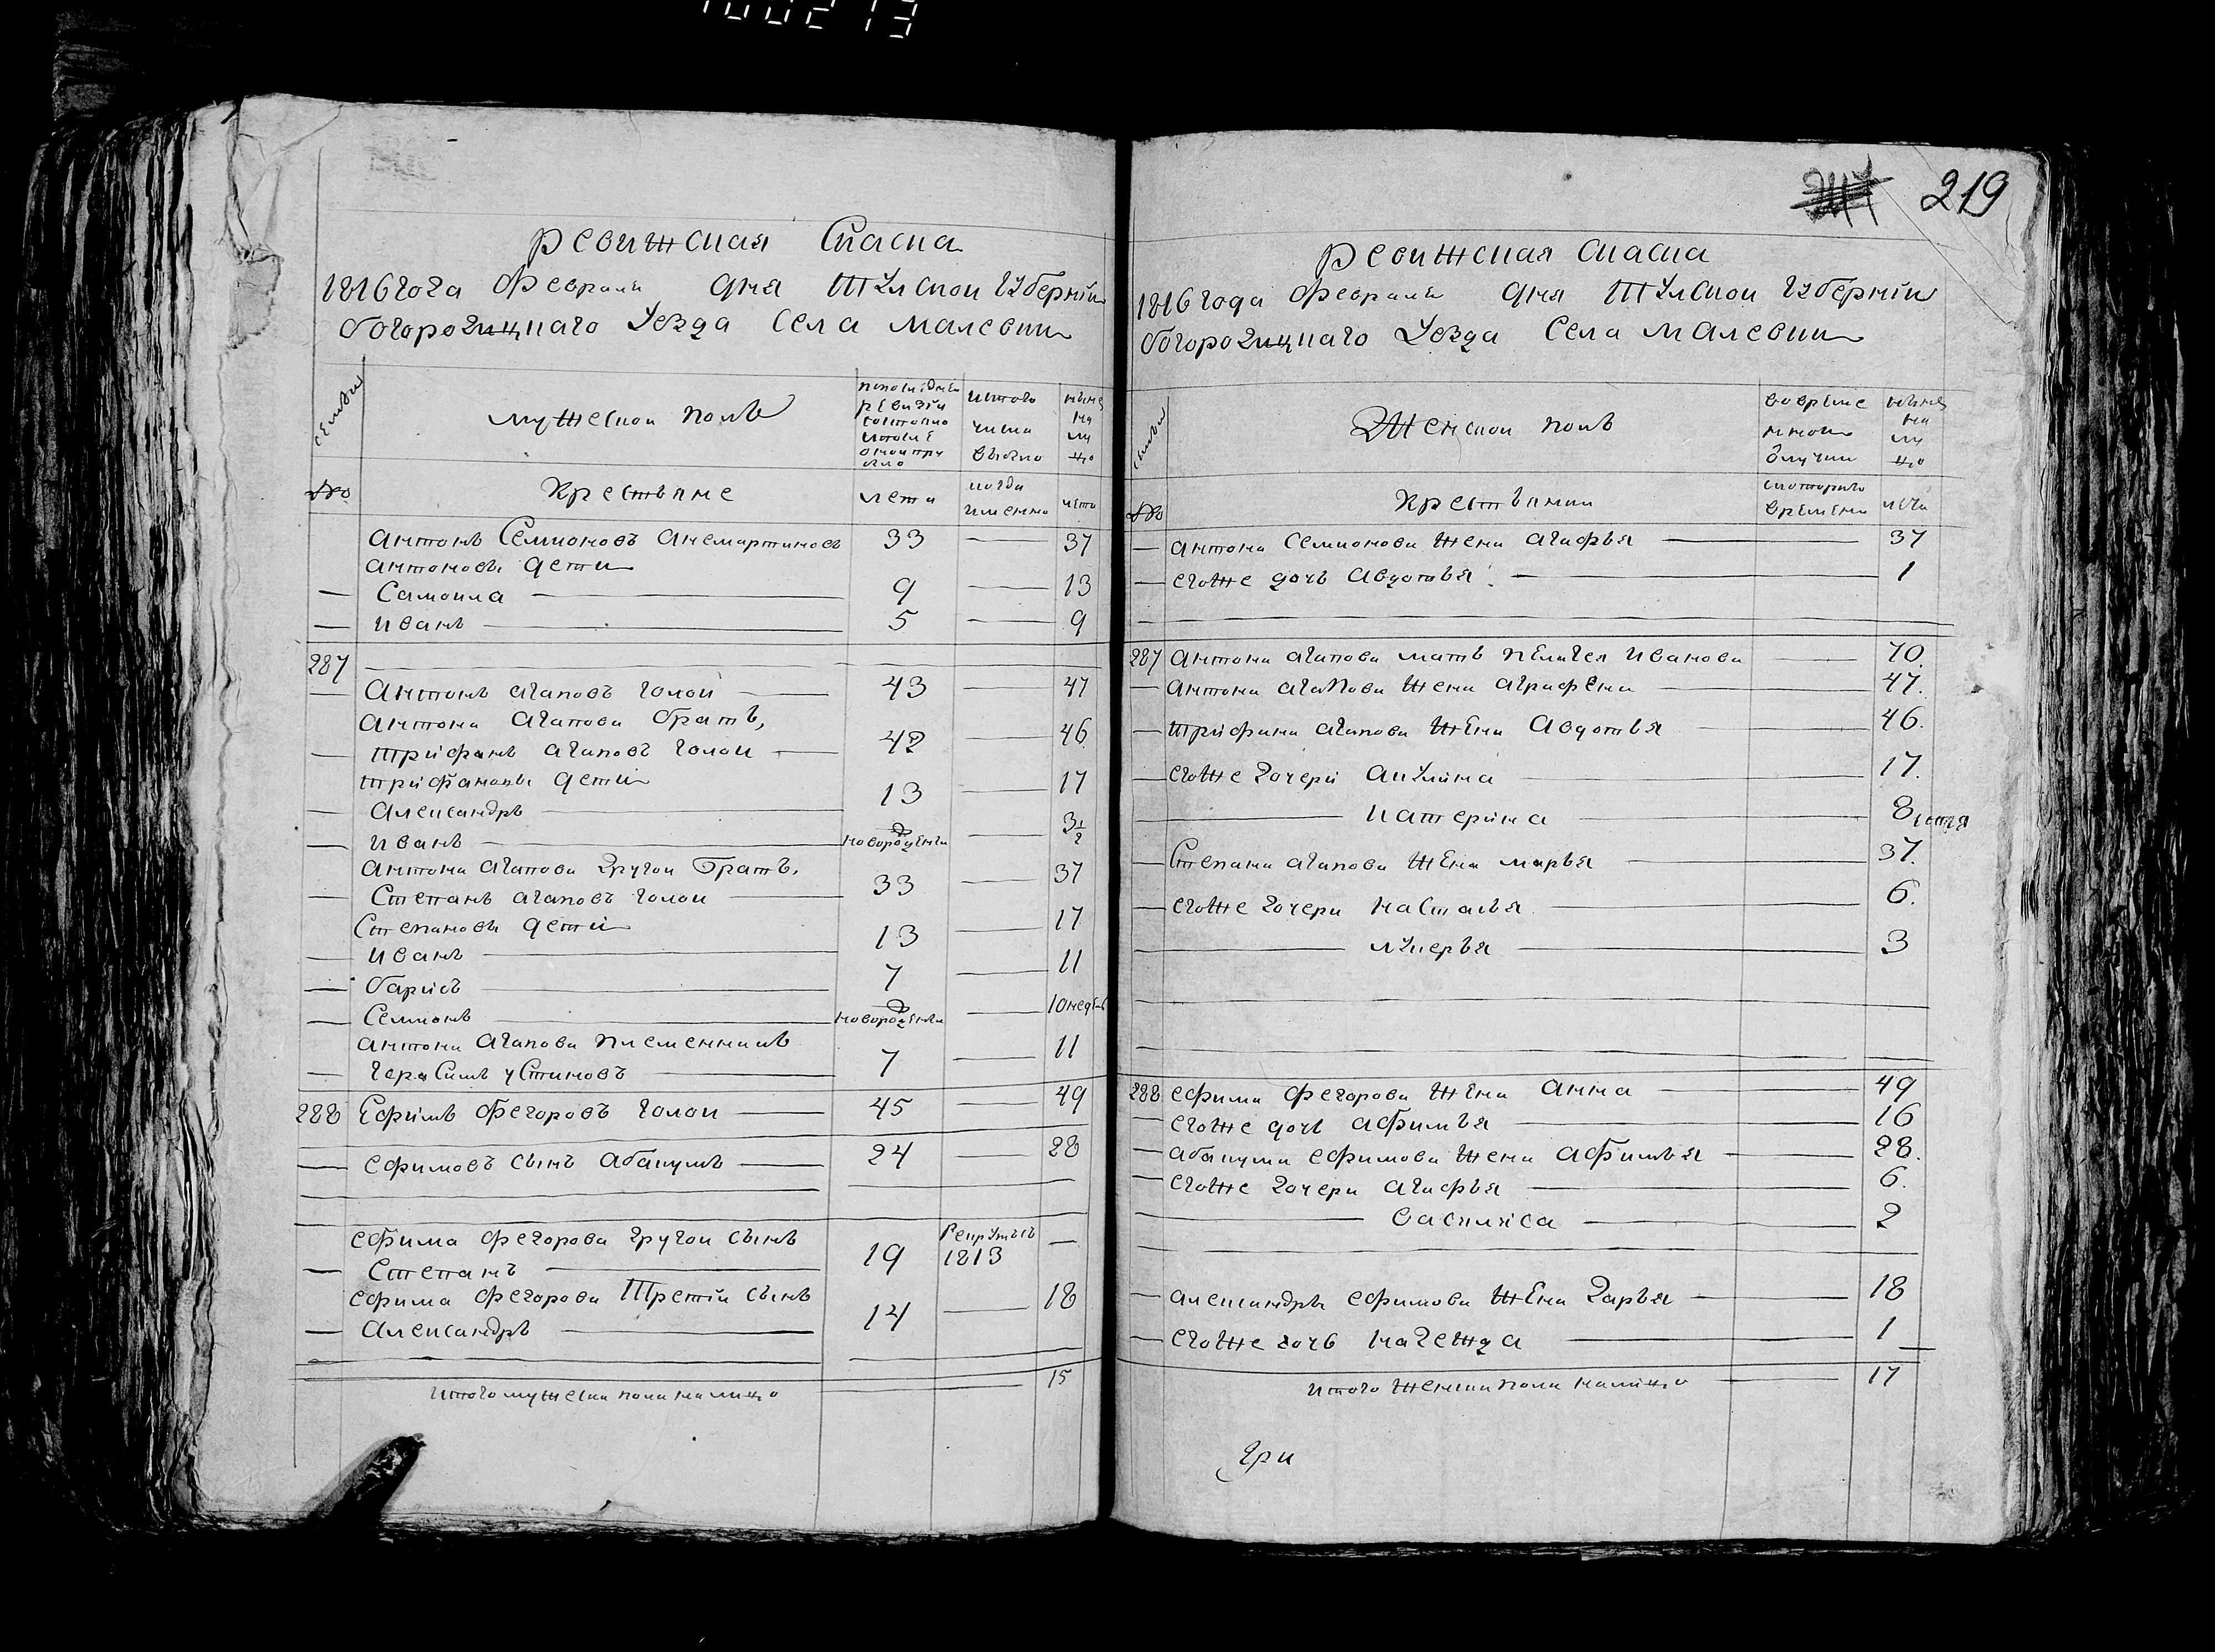 100213
Ревижская Скаска
1816 года Февраля дня Тулскои Губернїи
богородицкаго Уезда Села малевки
семьи
мужескои полъ
пополедней
ревизїи
состояло
и после
оной при
было
ис того
числа
выбыло
ныне
на
ли
цо
№
крестьяне
лета
когда
имянно
лета
антонъ Семионовъ анемартиновъ 33 37
антоновы дети
Самоила 9 13
иванъ 5 9
287
антонъ агаповъ голои 43 47
антона агапова братъ,
трифанъ агаповъ голои 42 46
трифановы дети
александръ 13 17
иванъ новорожденъ 3 1/2
антона агапова другои братъ.
Степанъ агаповъ голои 33 37
Степановы дети
иванъ 13 17
барисъ 7 11
Семионъ новорожденъ 10 недель
антона агапова племенникъ
герасимъ устиновъ 7 11
288 Ефимъ федоровъ голои 45 49
ефимовъ сынъ абакумъ 24 28
ефима федорова другои сынъ
Степанъ 19 Рекрутъ 1813
ефима федорова Третїи сынъ
александръ 14 18
итого мужеска пола налицо 15
219
Ревижская скаска
1816 года Февраля дня Тулскои Губернїи
богородицкаго Уезда Села малевки
семьи
Женскои полъ
во време
нной
отлучки
ныне
на
ли
цо
№
крестьянки
с котораго
времени
лета
антона семионова жена агафья 37
егоже дочь авдотья 1
287 антона агапова мать пелагея иванова 70.
антона агапова жена аграфена 47.
трифана агапова жена авдотья 46.
егоже дочери акулина 17.
катерина 8 летъ
Степана агапова жена марья 37.
егоже дочери насталья 6.
лукерья 3
288 ефима федорова жена анна 49
егоже дочь афимья 16
абакума ефимова жена афимья 28.
егоже дочери агафья 6.
василиса 2
александры ефимова жена дарья 18
егоже дочь надежда 1
итого женска пола налицо 17
гри